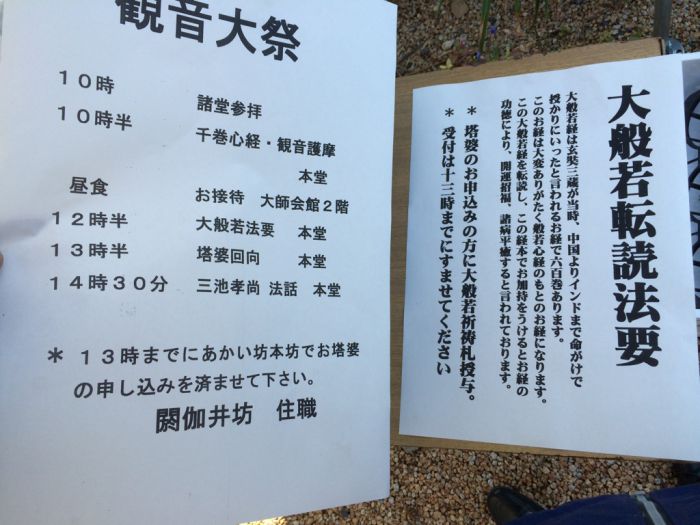 観音大祭
10時 諸堂参拝
10時半 千巻心経・観音護摩
本堂
昼食 お接待 大師会館2階
12時半 大般若法要 本堂
13時半 塔婆回向 本堂
14時30分 三池孝尚 法話 本堂
* 13時までにあかい坊本坊でお塔婆
の申し込みを済ませて下さい。
閼伽井坊 住職
大般若転読法要
大般若経は玄奘三蔵が当時、中国よりインドまで命がけで
授かりにいったと言われるお経で六百巻あります。
このお経は大変ありがたく般若心経のもとのお経になります。
この大般若経を転読し、この経本でお加持をうけるとお経の
功徳により、開運招福、諸病平癒すると言われております。
* 塔婆のお申込みの方に大般若祈祷札授与。
* 受付は十三時までにすませてください